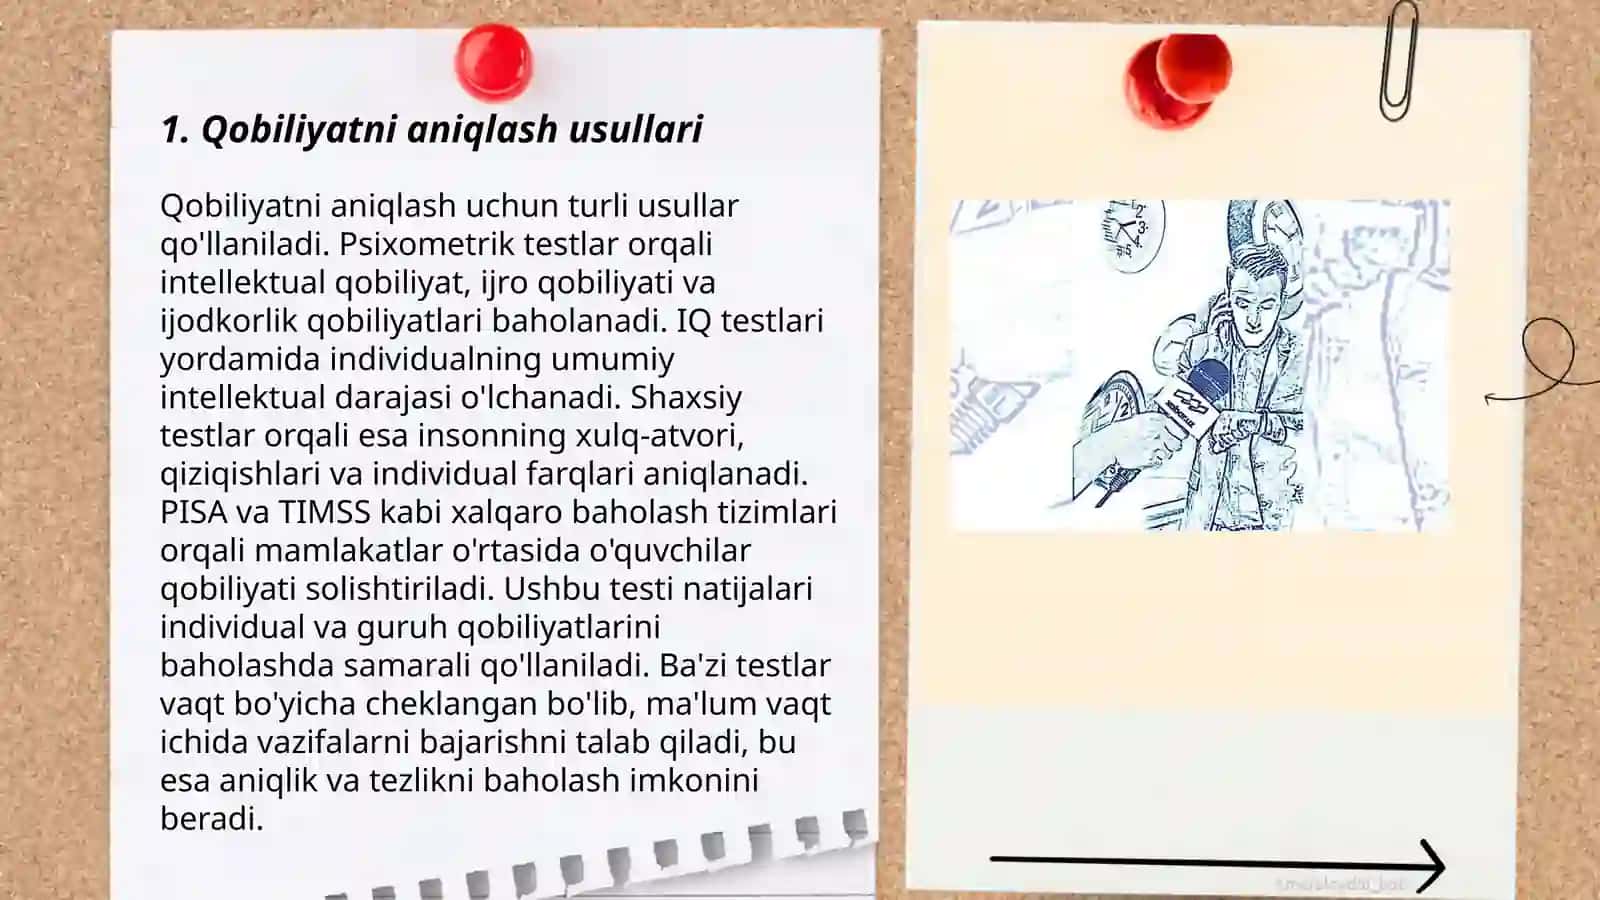 1. Qobiliyatni aniqlash usullari
Qobiliyatni aniqlash uchun turli usullar
qo'llaniladi. Psixometrik testlar orqali
intellektual qobiliyat, ijro qobiliyati va
ijodkorlik qobiliyatlari baholanadi. IQ testlari
yordamida individualning umumiy
intellektual darajasi o'lchanadi. Shaxsiy
testlar orqali esa insonning xulq-atvori,
qiziqishlari va individual farqlari aniqlanadi.
PISA va TIMSS kabi xalqaro baholash tizimlari
orqali mamlakatlar o'rtasida o'quvchilar
qobiliyati solishtiriladi. Ushbu testi natijalari
individual va guruh qobiliyatlarini
baholashda samarali qo'llaniladi. Ba'zi testlar
vaqt bo'yicha cheklangan bo'lib, ma'lum vaqt
ichida vazifalarni bajarishni talab qiladi, bu
esa aniqlik va tezlikni baholash imkonini
beradi.